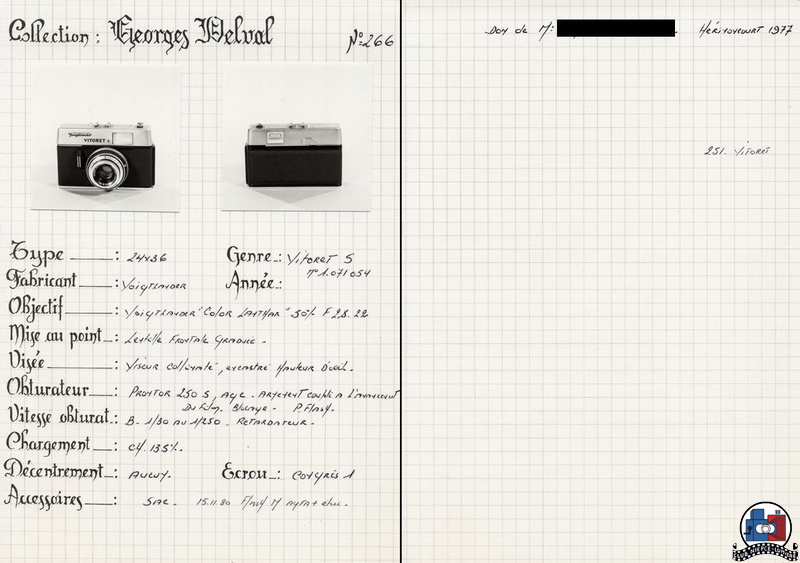 Collection : Georges Delval
N° 266
Voigtländer
VITORET S
Type : 24x36
Genre : Vitoret S
n° 1.071054
Fabricant : Voigtlander
Année :
Objectif : Voigtlander "Color Lanthar" 50% F 2,8. 22
Mise au point : Lentille Frontale Graduée.
Visée : Viseur collimaté, encastré Hauteur D'oeil.
Obturateur : Prontor 250 S, Age. Armement couplé à l'avancement
Du Film. Blocage. P. Flash.
Vitesse obturat. : B. 1/30 au 1/250. Retardateur.
Chargement : CH. 135%.
Décentrement : Aucun.
Ecrou : Congrès 1
Accessoires : Sac. 15.11.80 Flash M
Don de Mr:
Hérimoncourt 1977
251. Vitoret